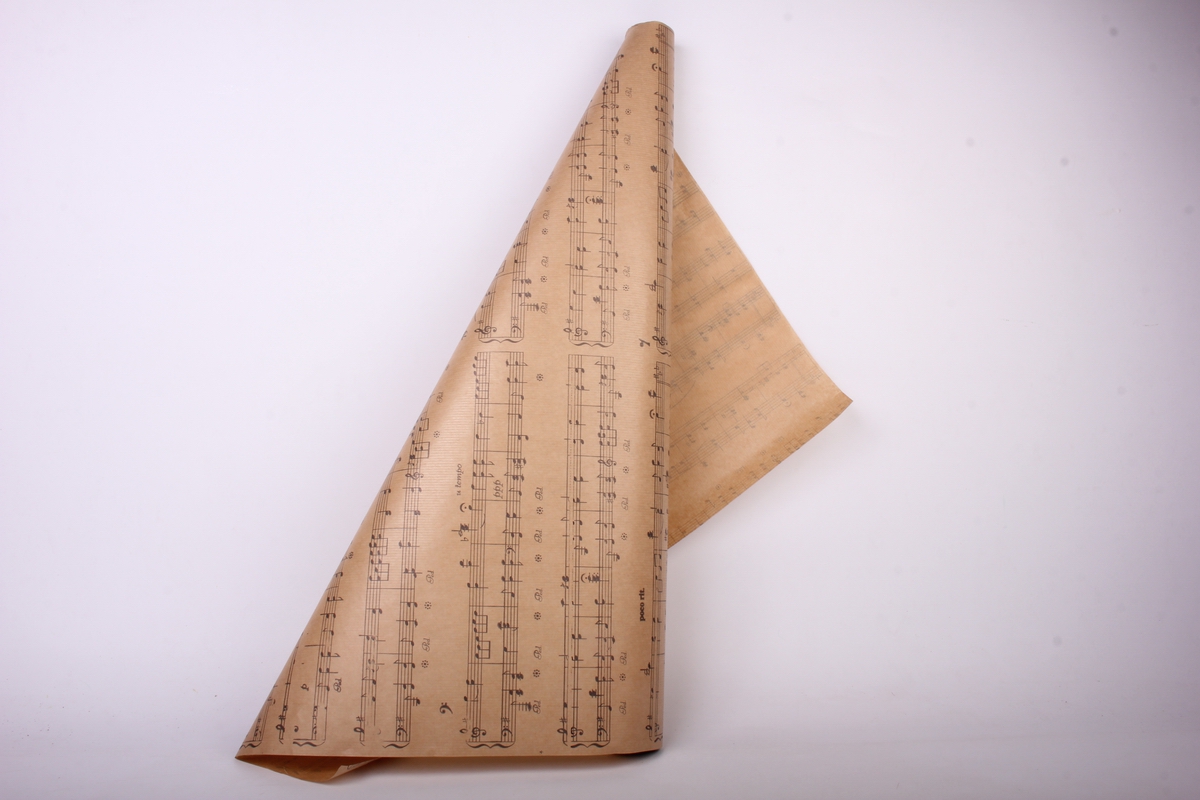 a tempo
poco rit.